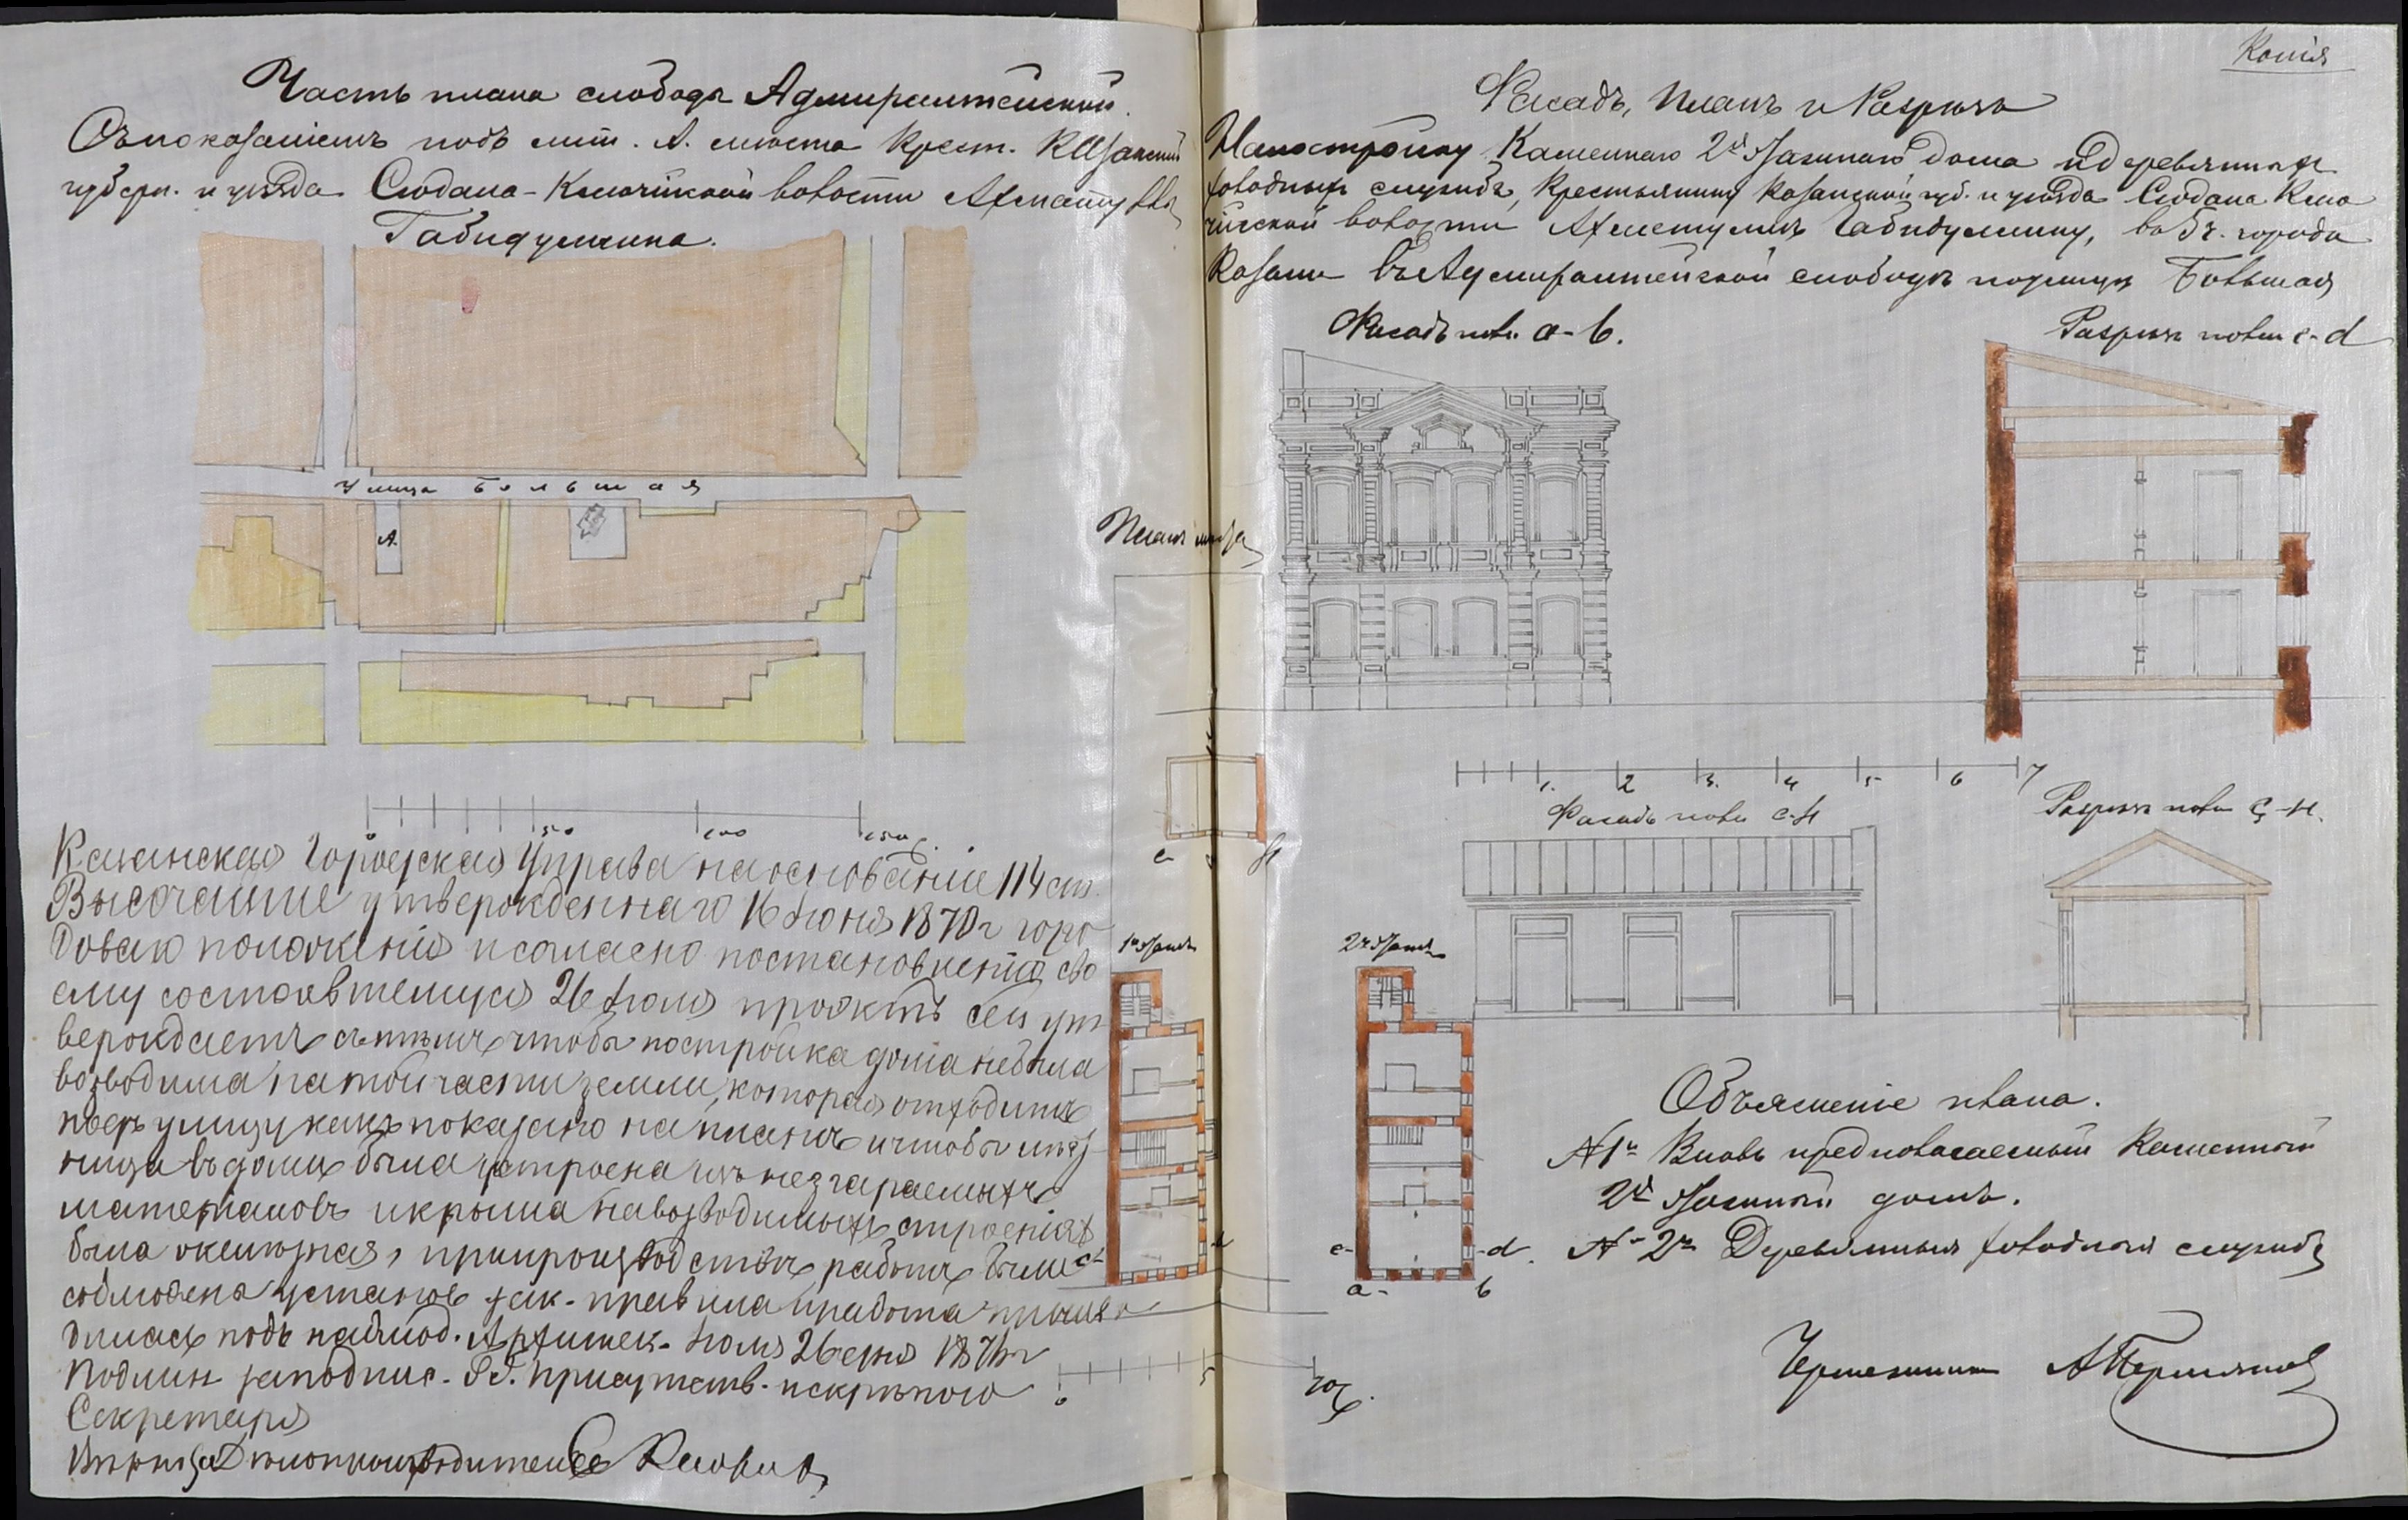 Часть плана слободы Адмиралтейской.
Съ показаніемъ подъ лит. А. места Крест. Казанской
губерн. и уѣзда Сюдаша-Ключійской волости Ахмату
Габидуллина.
Улица Большая
А.
0 50 100 150 с.
Казанская Городская Управа на основаніи 114 ст.
Высочайше утвержденнаго 16 Іюня 1870 г. горо
доваго положенія и согласно постановленію сво
ему состоявшемуся 26 Іюля проэктъ сей ут
верждаетъ съ тѣмъ чтобы постройка дома не была
возводима на той части земли, которая отходитъ
подъ улицу какъ показано на планѣ и чтобы лѣст
ница въ домѣ была устроена изъ незгараемыхъ
матеріаловъ и крыша на возводимыхъ строеніяхъ
была желѣзная, при производствѣ работъ были
соблюдены установ. зак. правила и работа произво
дилась подъ наблюд. Архитек. Іюля 26 дня 187
Подлин. за подпис. Г.Г. присутств. и скрѣпою
Секретаря
Вѣрно: за Дѣлопроизводителя
Копія
Фасадъ, Планъ и Разрѣзъ
На постройку Каменнаго 2хъ этажнаго дома и деревянныхъ
холодныхъ службъ, Крестьянину Казанской губ. и уѣзда Сюдаша Клю
чійской волости Ахметуллѣ Габидуллину, въ 5 ч. города
Казани въ Адмиралтейской слободѣ по улицѣ Большая
Фасадъ по лин. a-b.
Разрѣзъ по лин. c-d
Планъ мѣста
1. 2 3. 4 5 6 7
Фасадъ по лин.
Разрѣзъ по лин.
1й этажъ
2й этажъ
c- -d.
a- b
0 5 10 с.
Объясненіе плана.
№ 1й Вновь предполагаемый Каменный
2хъ этажный домъ.
№ 2й Деревянныя холодныя службы
Чертежникъ А Пермяковъ